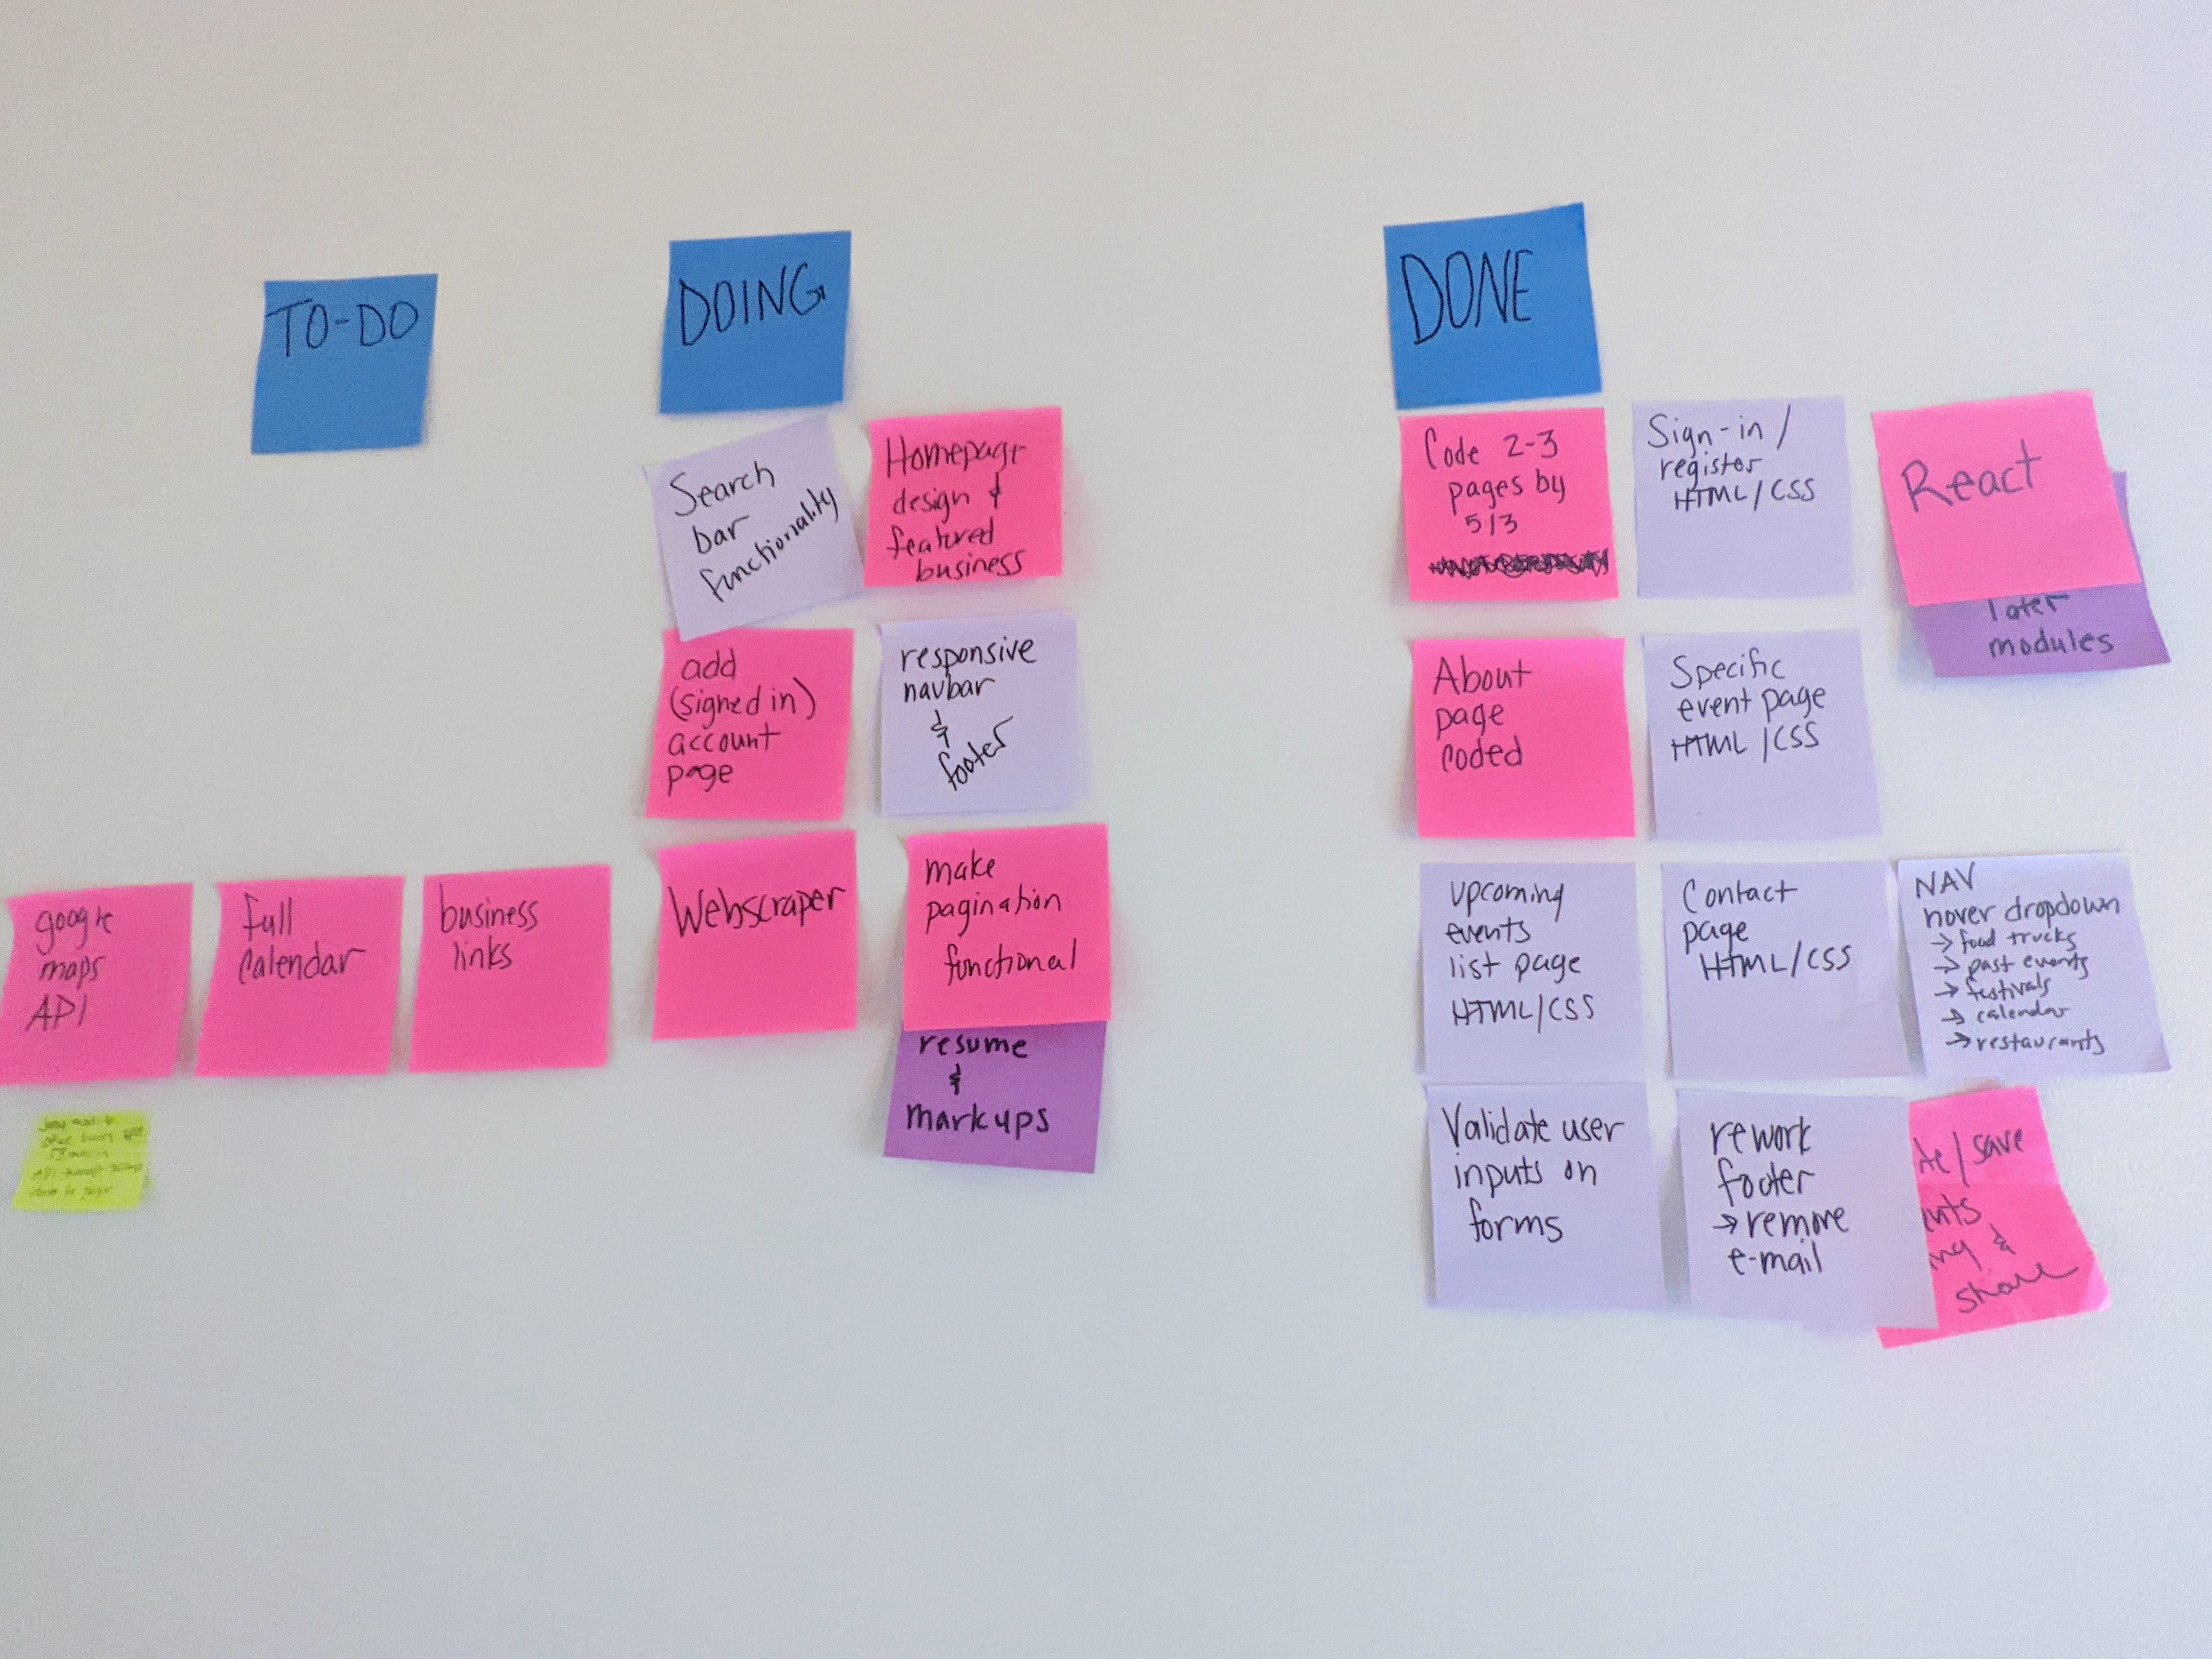 TO-DO
google
maps
API
full
calendar
business
links
DOING
Search
bar
functionality
Homepage
design &
featured
business
add
(signed in)
account
page
responsive
navbar
&
footer
Webscraper
make
pagination
functional
resume
&
markups
DONE
Code 2-3
pages by
5/3
Sign-in /
register
HTML/CSS
React
later
modules
About
page
coded
Specific
event page
HTML /CSS
Upcoming
events
list page
HTML/CSS
Contact
page
HTML/CSS
NAV
hover dropdown
→ food trucks
→ past events
→ festivals
→ calendar
→ restaurants
Validate user
inputs on
forms
rework
footer
→ remove
e-mail
/save
&
share